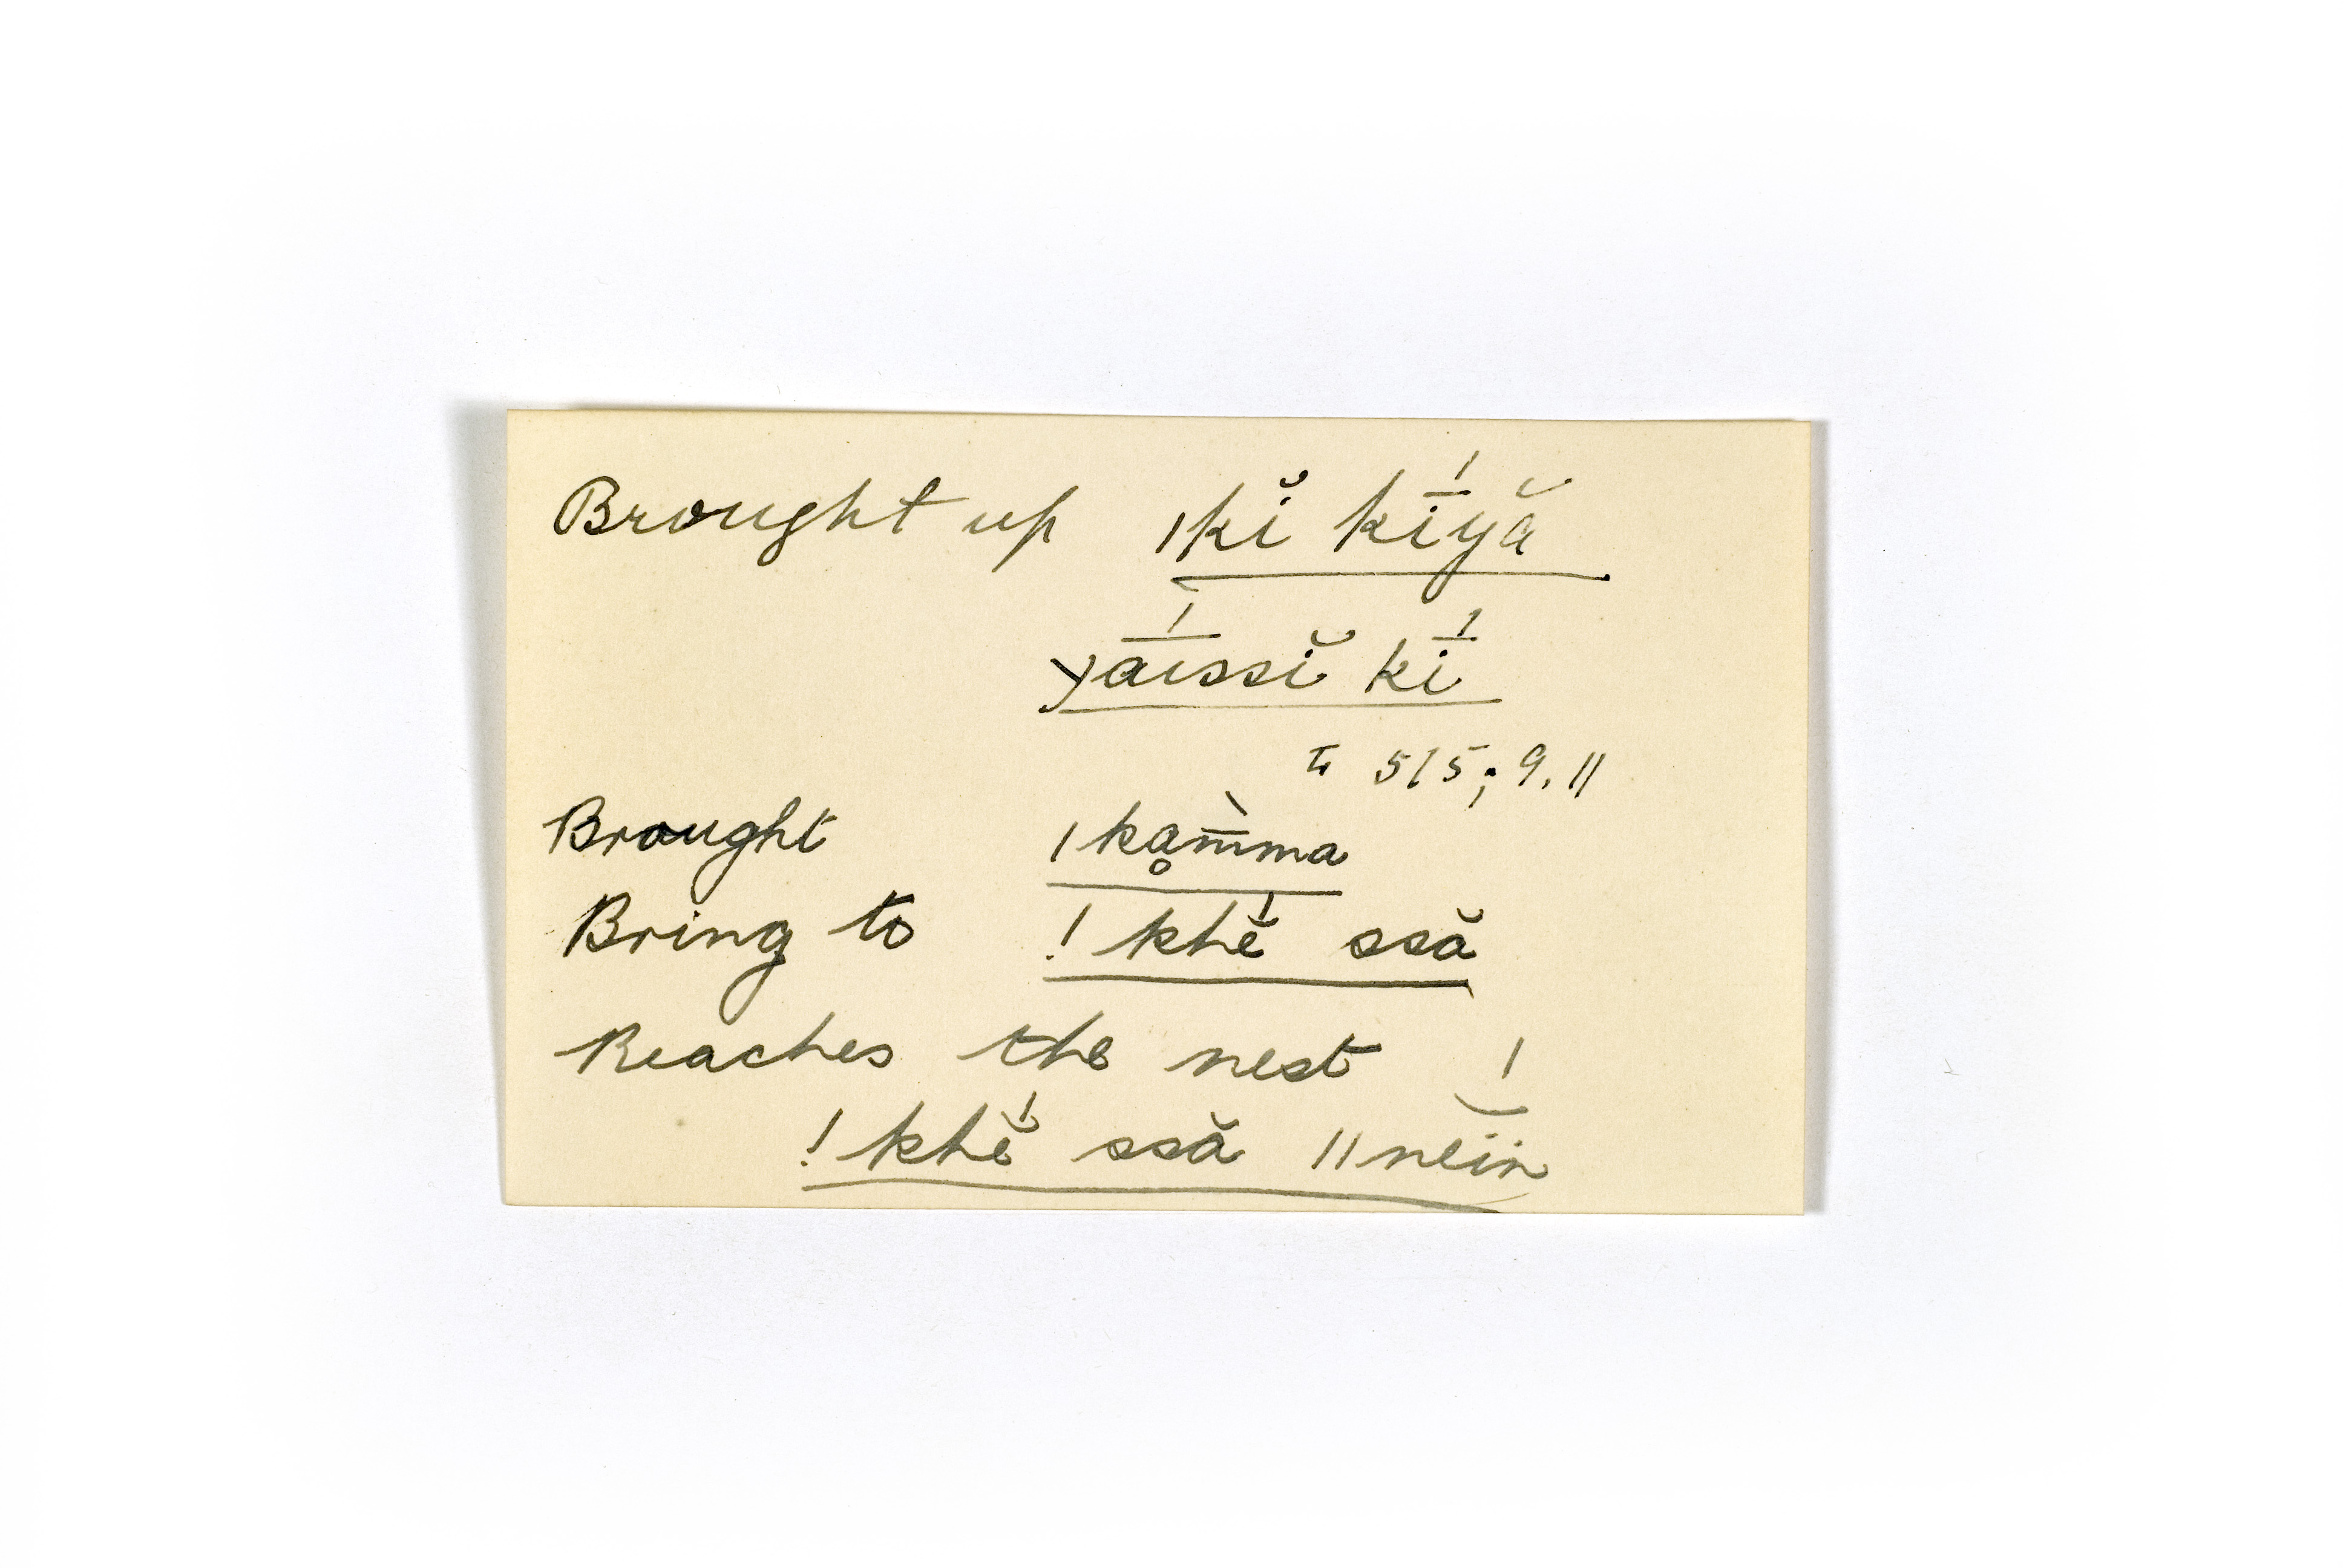 Brought up ǀkĭ kī́yă
yā́ıssĭ kī́
to 515; 9. 11
Brought ǀkḁm̄̀ma
Bring to !khĕ́ ssă
Reaches the nest
!khĕ́ ssă ǁnĕ́ı̆n